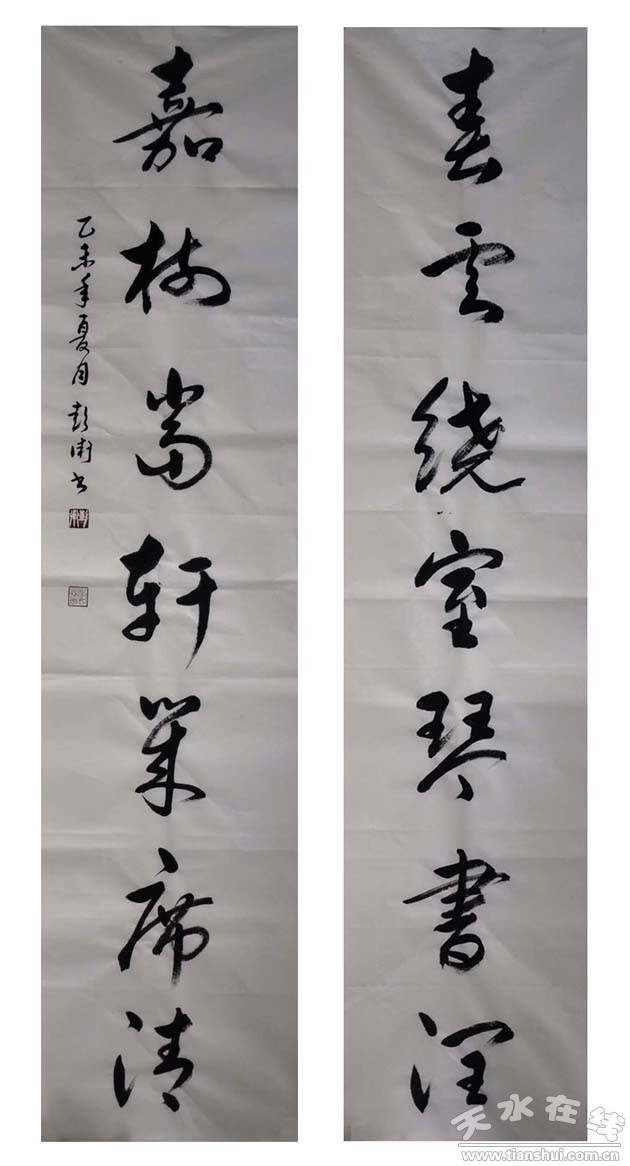 春云绕室琴書润
嘉树當轩幾席清
乙未年夏月 彭衛书
天水在线
www.tianshui.com.cn